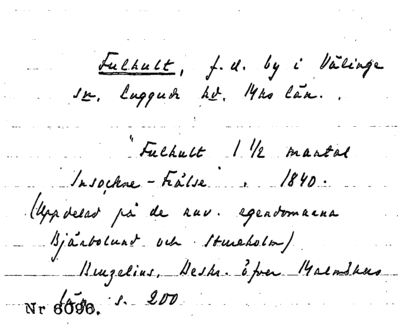 Fulhult, f.d. by i Välinge
sn, Luggude hd, Mhs län.
"Fulhult 1 1/2 mantal
Insockne-Frälse", 1840.
(Uppdelad på de nuv. egendomarna
Björkolund och Stureholm)
Bruzelius, Beskr. öfver Malmöhus
län s. 200
Nr 6096.